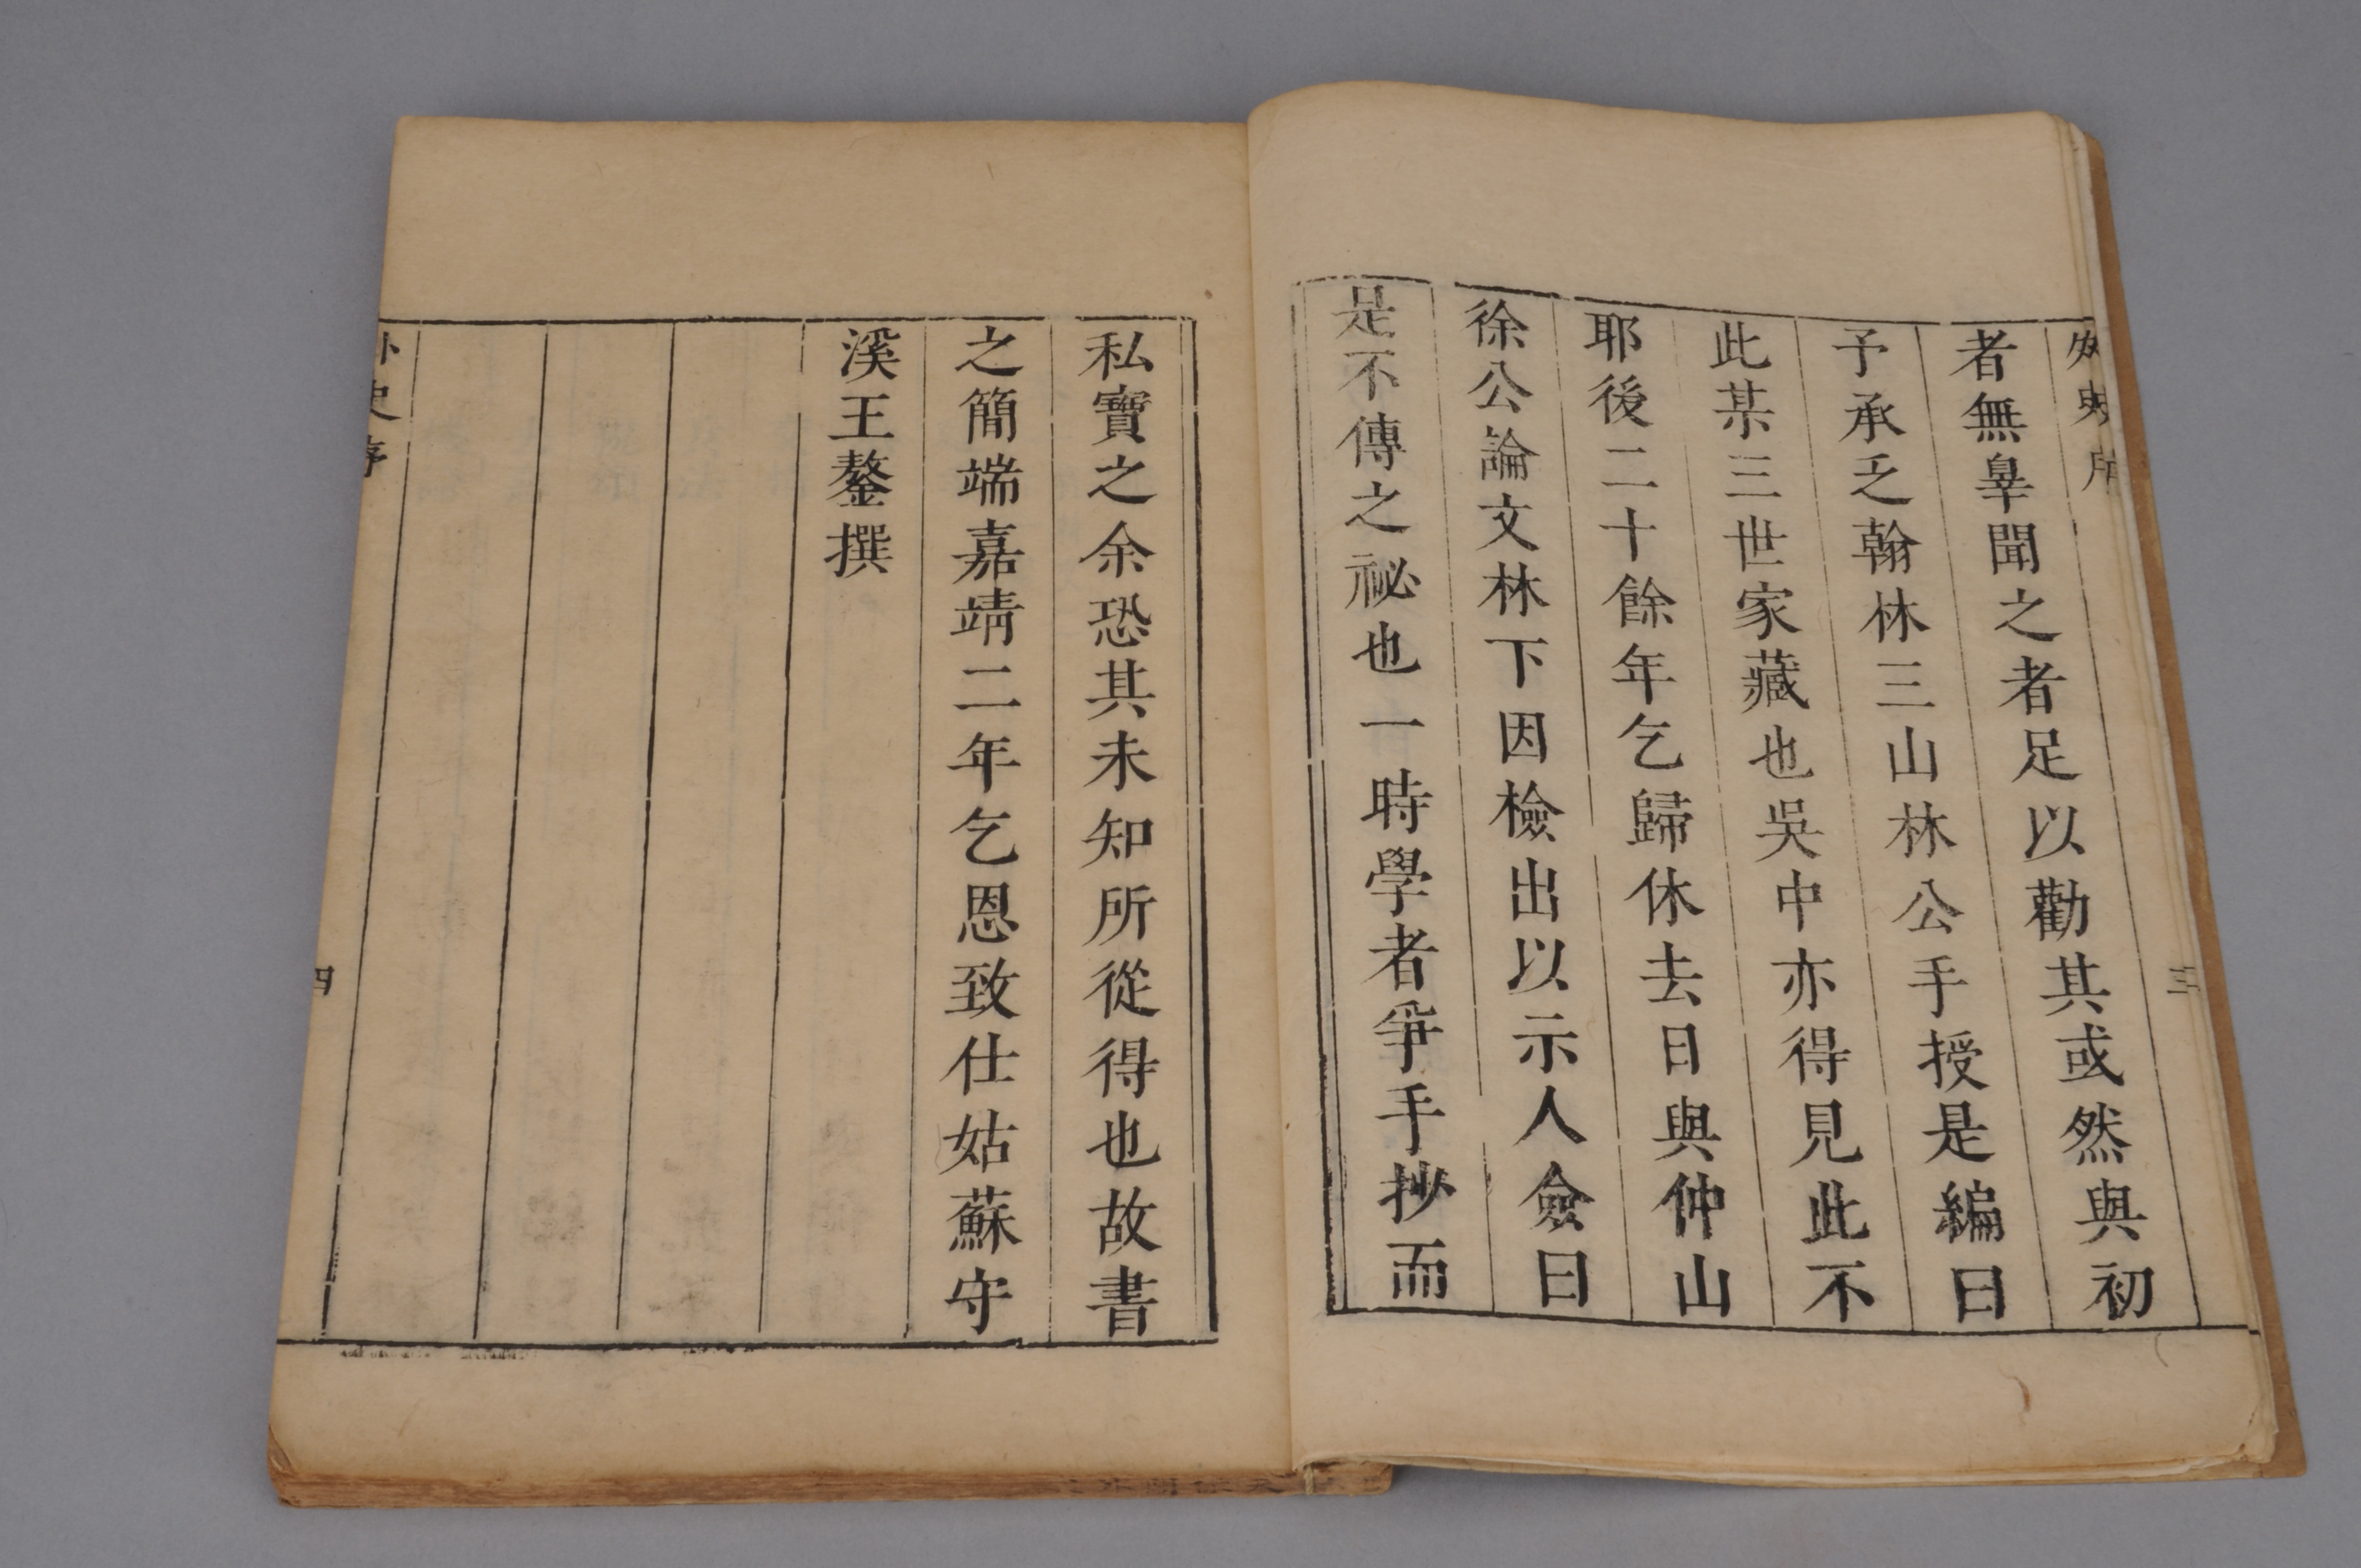 者無辠聞之者足以勸其或然與初
予承乏翰林三山林公手授是編曰
此某三世家藏也吳中亦得見此不
耶後二十餘年乞歸休去日與仲山
徐公論文林下因檢出以示人僉曰
是不傳之祕也一時學者爭手抄而
私寶之余恐其未知所從得也故書
之簡端嘉靖二年乞恩致仕姑蘇守
溪王鏊撰
外史序
四